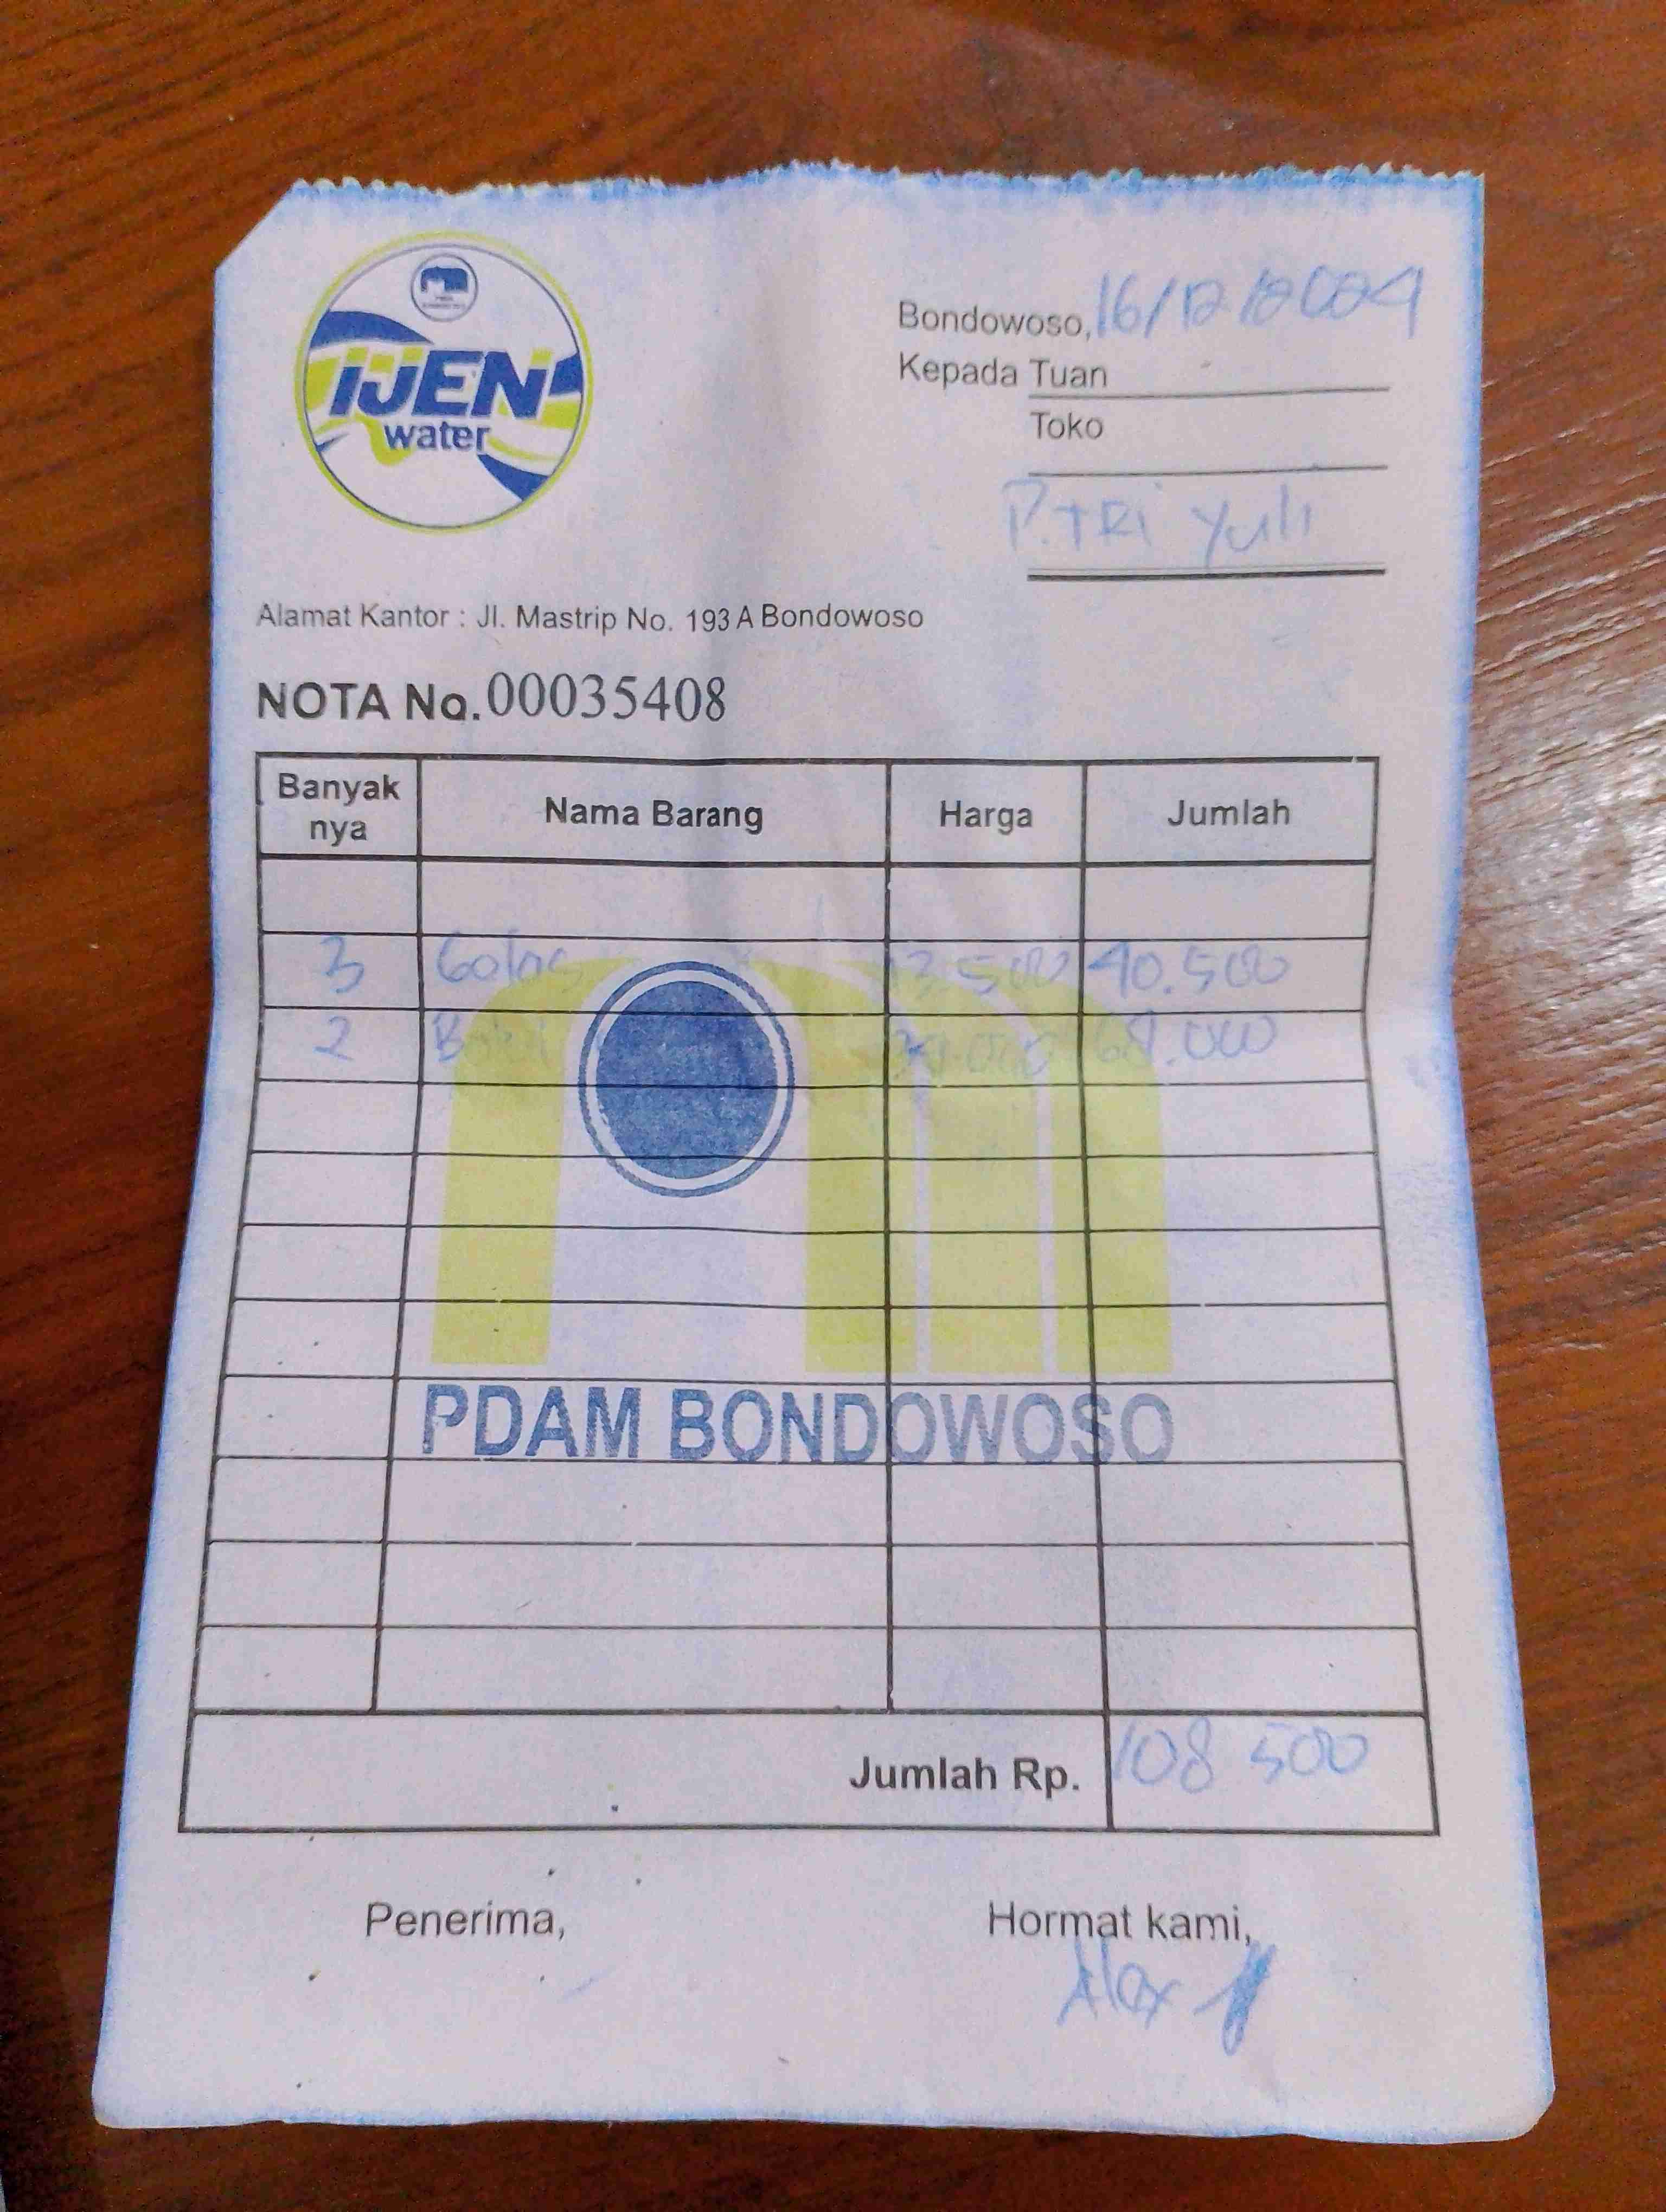 IJEN
water
Bondowoso, 16/12/2024
Kepada Tuan
Toko
P. TRI Yuli
Alamat Kantor : Jl. Mastrip No. 193 A Bondowoso
NOTA No. 00035408
Banyak nya Nama Barang Harga Jumlah
3 Gelas 13.500 40.500
2 Botol 34.000 68.000
PDAM BONDOWOSO
Jumlah Rp. 108 500
Penerima, Hormat kami,
Alex